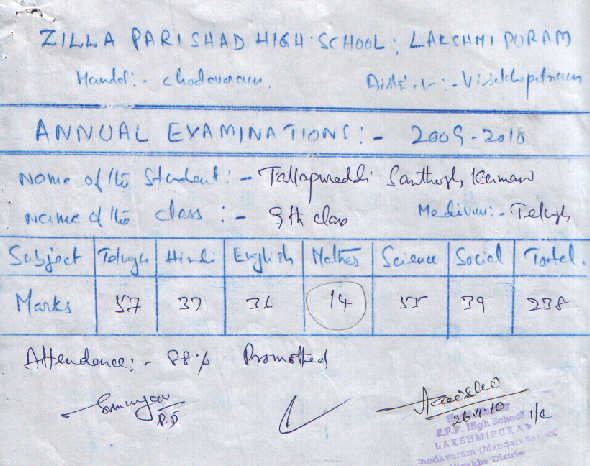 ZILLA PARISHAD HIGH SCHOOL: LAKSHMIPURAM
Mandal:- chodavaram. Dist:- Visakhapatnam
ANNUAL EXAMINATIONS:- 2009-2010
Name of the Student:- Tallapureddi Santhosh Kumar
Name of the class:- 9th class Medium:- Telugu
Subject Telugu Hindi English Mathes Science Social Total.
Marks 57 14 55 39 238
Attendence:- 88% Promotted
26.4.10
High School
LAKSHMIPURAM